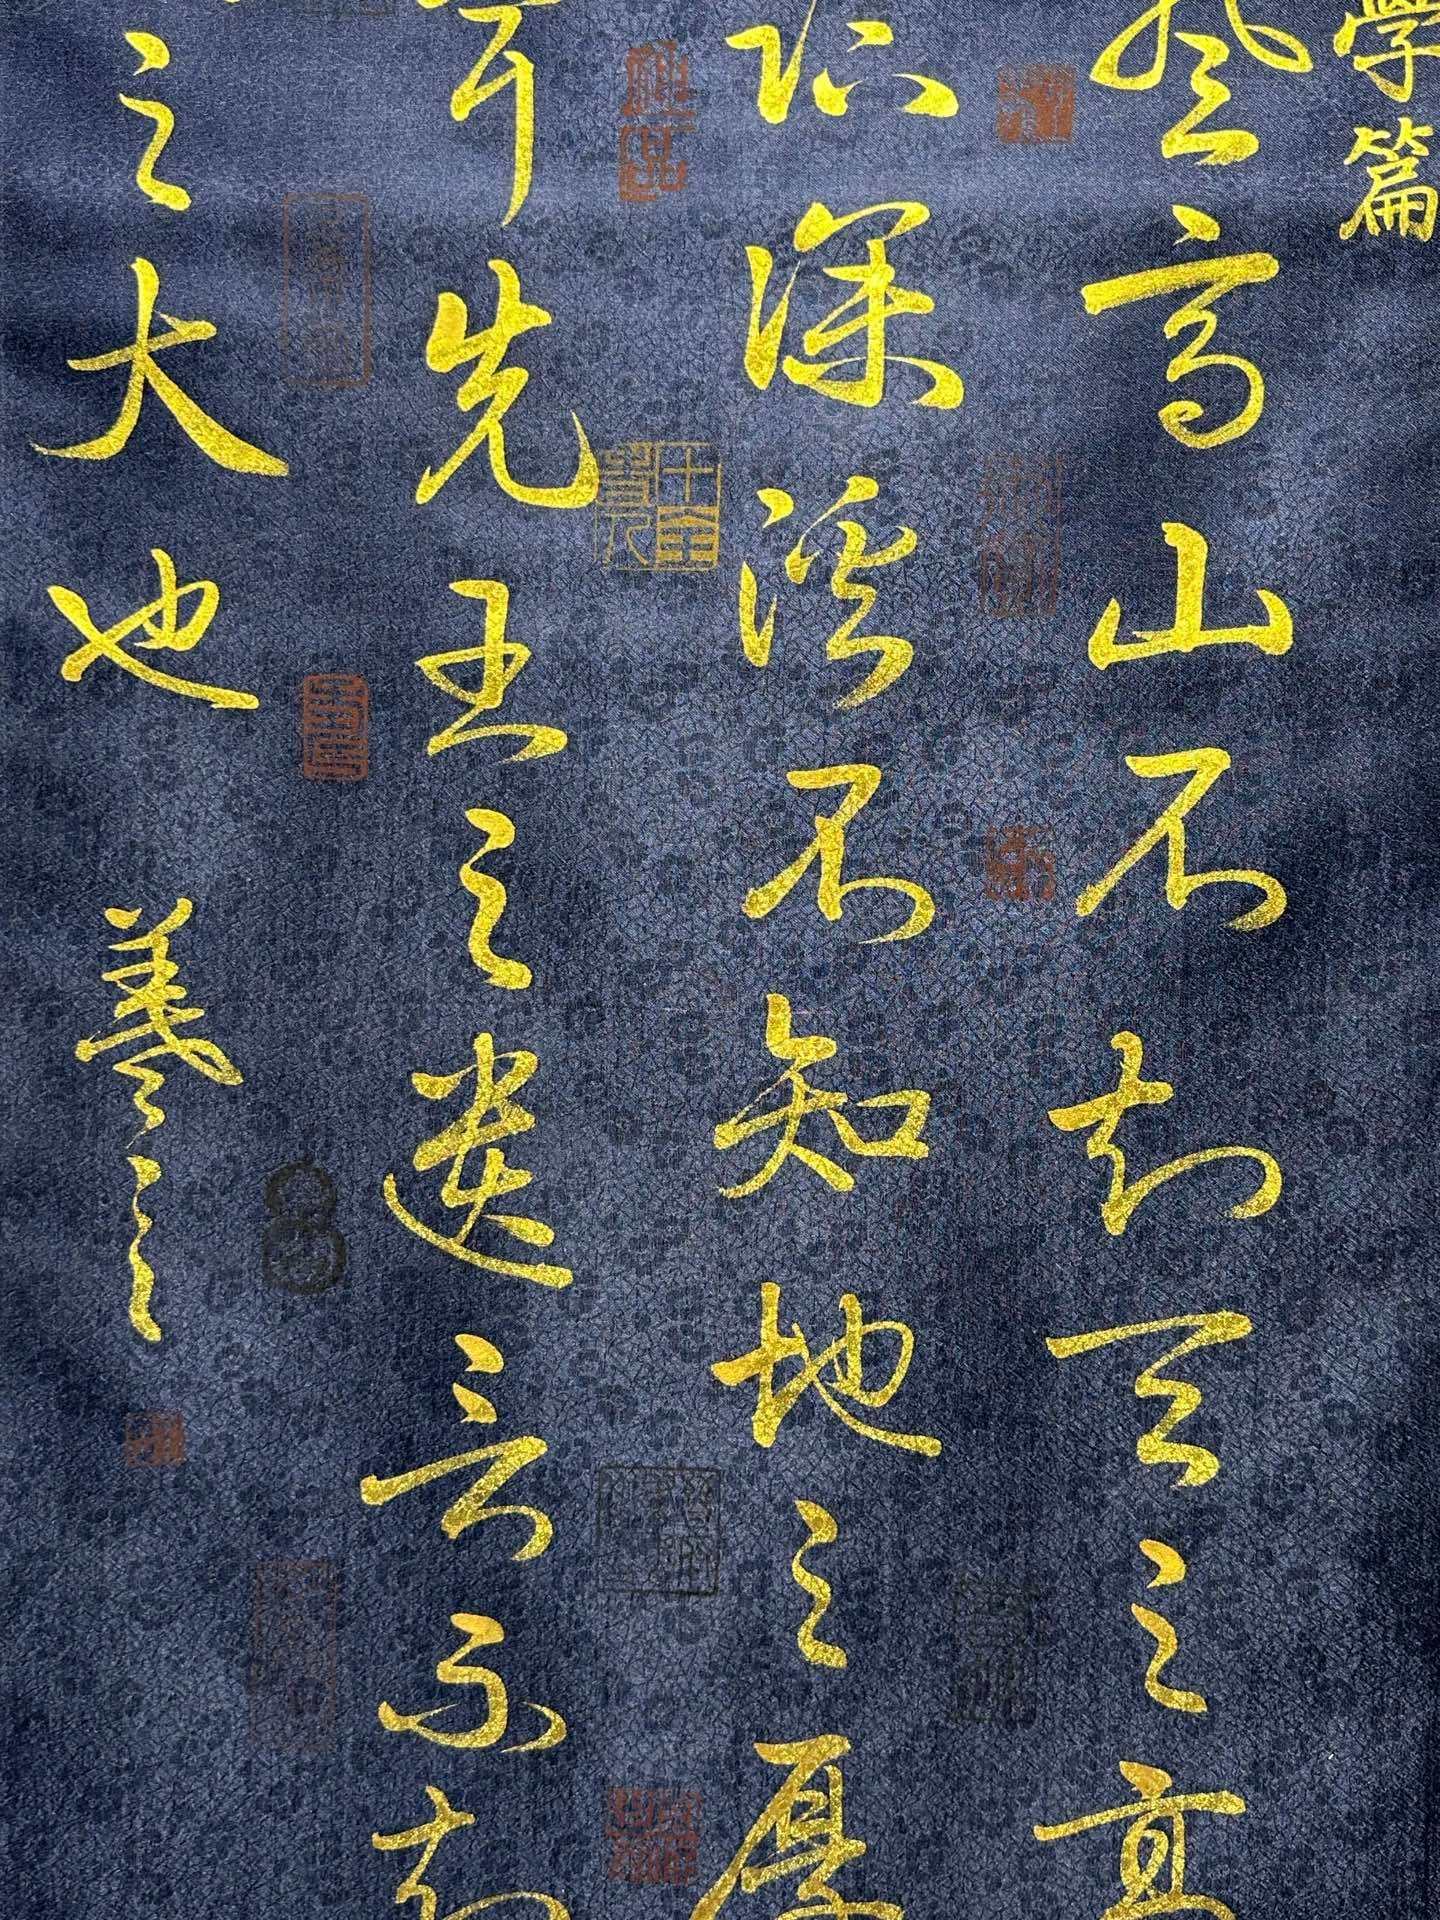 學篇
登高山不知天之高
臨深溪不知地之厚
聞先王之遺言不知
之大也 羲之
十全老人